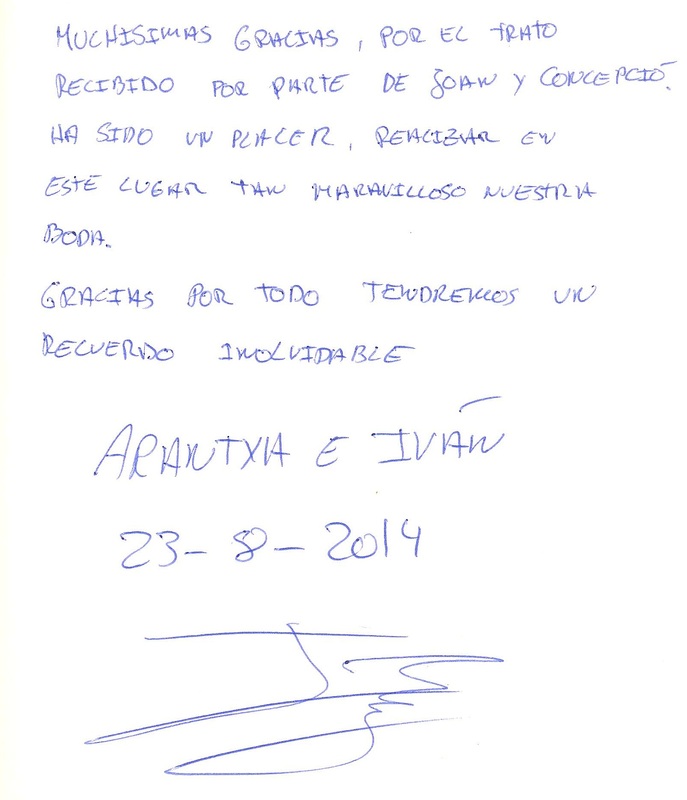 MUCHISIMAS GRACIAS, POR EL TRATO
RECIBIDO POR PARTE DE JOAN Y CONCEPCIÓ.
HA SIDO UN PLACER, REALIZAR EN
ESTE LUGAR TAN MARAVILLOSO NUESTRA
BODA.
GRACIAS POR TODO TENDREMOS UN
RECUERDO INOLVIDABLE
ARANTXA E IVÁN
23-8-2014